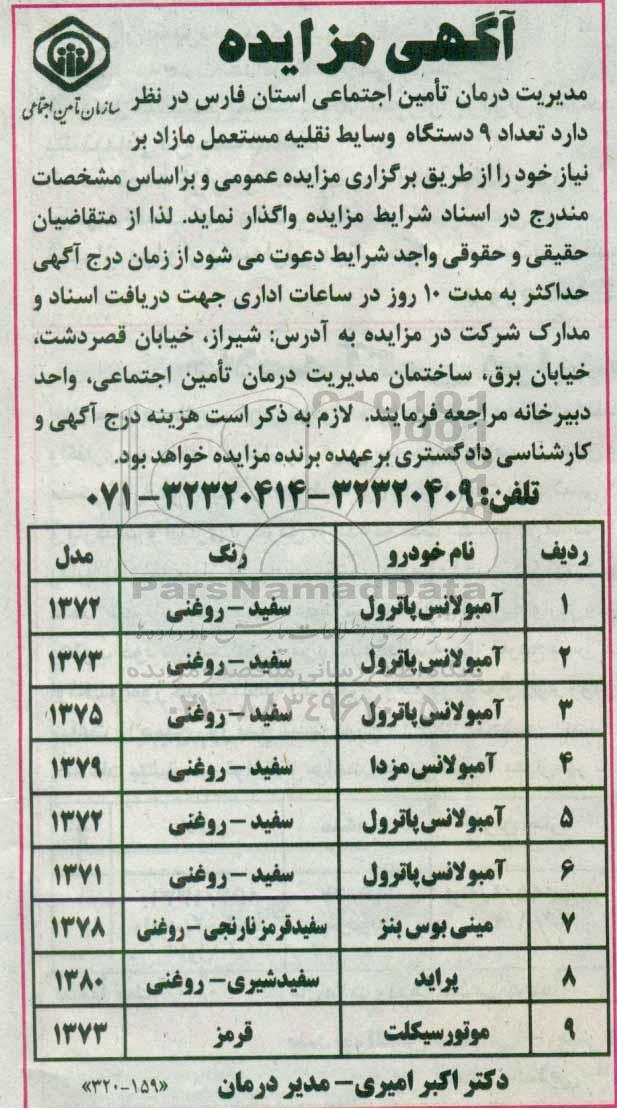 آگهی مزایده
سازمان تأمین اجتماعی
مدیریت درمان تأمین اجتماعی استان فارس در نظر
دارد تعداد ۹ دستگاه وسایط نقلیه مستعمل مازاد بر
نیاز خود را از طریق برگزاری مزایده عمومی و براساس مشخصات
مندرج در اسناد شرایط مزایده واگذار نماید. لذا از متقاضیان
حقیقی و حقوقی واجد شرایط دعوت می شود از زمان درج آگهی
حداکثر به مدت ۱۰ روز در ساعات اداری جهت دریافت اسناد و
مدارک شرکت در مزایده به آدرس: شیراز، خیابان قصردشت،
خیابان برق، ساختمان مدیریت درمان تأمین اجتماعی، واحد
دبیرخانه مراجعه فرمایند. لازم به ذکر است هزینه درج آگهی و
کارشناسی دادگستری برعهده برنده مزایده خواهد بود.
تلفن: ۳۲۳۲۰۴۰۹-۳۲۳۲۰۴۱۴-۰۷۱
ردیف نام خودرو رنگ مدل
۱ آمبولانس پاترول سفید - روغنی ۱۳۷۲
۲ آمبولانس پاترول سفید - روغنی ۱۳۷۳
۳ آمبولانس پاترول سفید - روغنی ۱۳۷۵
۴ آمبولانس مزدا سفید - روغنی ۱۳۷۹
۵ آمبولانس پاترول سفید - روغنی ۱۳۷۲
۶ آمبولانس پاترول سفید - روغنی ۱۳۷۱
۷ مینی بوس بنز سفیدقرمز نارنجی - روغنی ۱۳۷۸
۸ پراید سفیدشیری - روغنی ۱۳۸۰
۹ موتورسیکلت قرمز ۱۳۷۳
دکتر اکبر امیری - مدیر درمان «۳۲۰-۱۵۹»
ParsNamadData
۰۲۱-۸۸۳۴۹۶۷۰-۵